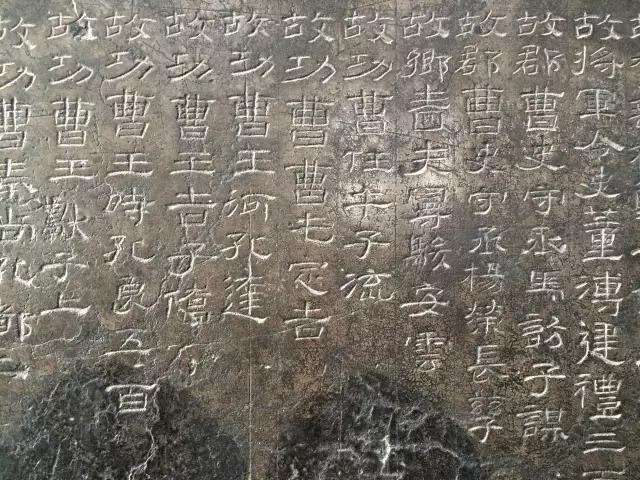 故將軍令史董溥建禮三百
故郡曹史守丞馬訪子謀
故郡曹史守丞楊榮長孳
故鄉嗇夫曼駿安雲
故功曹任午子流
故功曹曹屯定吉
故功曹王河孔達
故功曹王吉子僑
故功曹王時孔良五百
故功曹王獻子上
故功曹秦尚孔都二